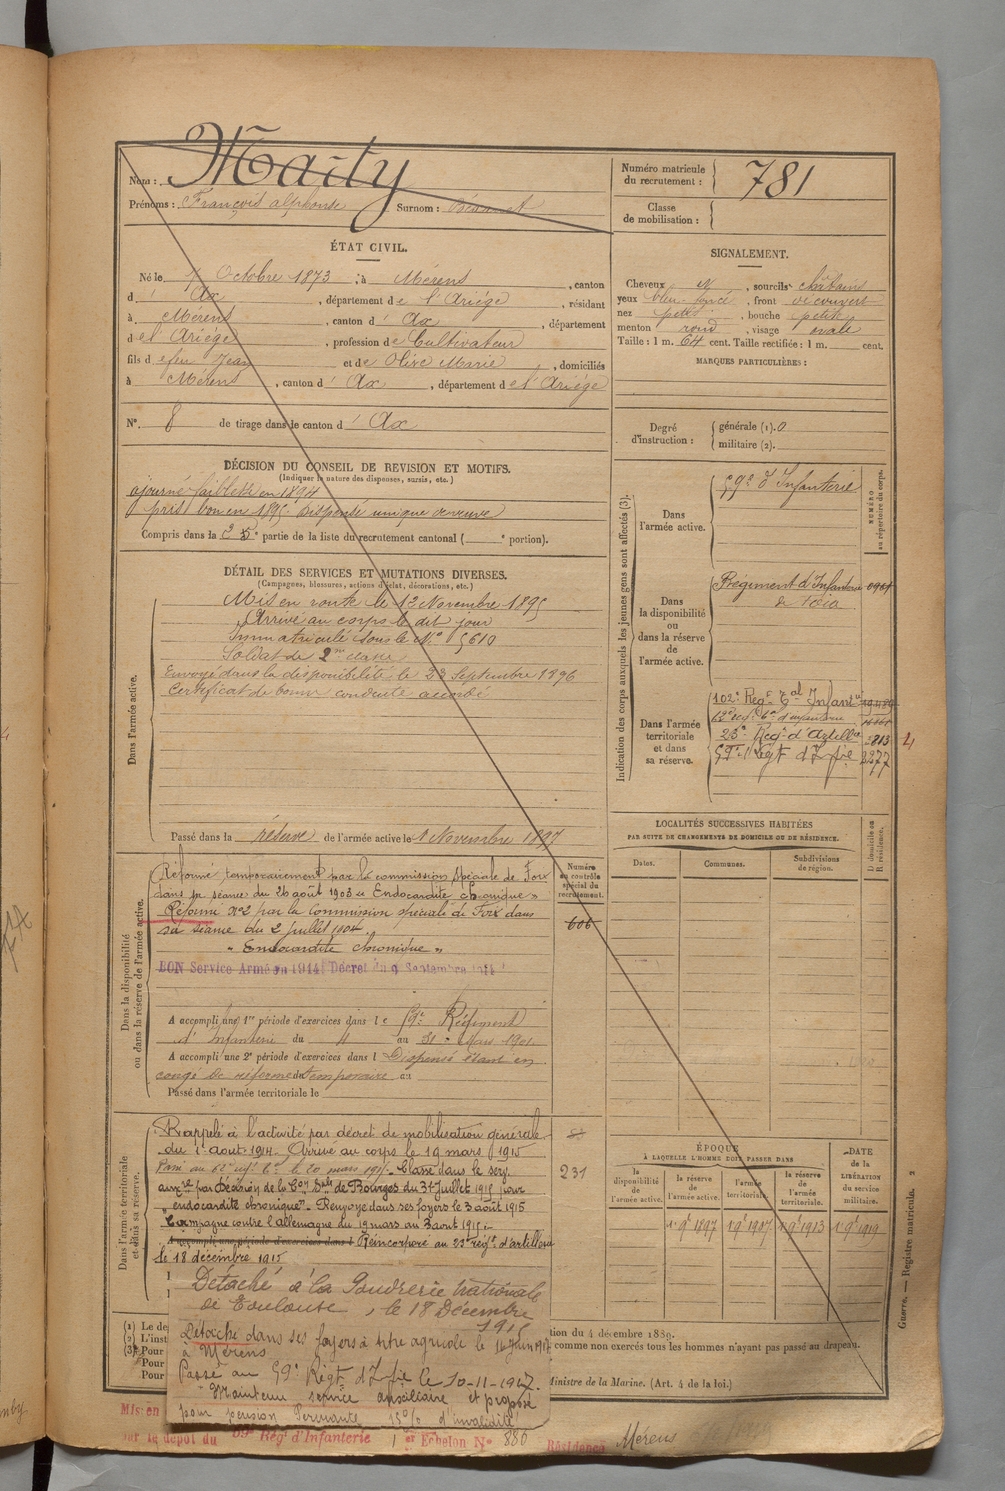 Nom : Marty
Numéro matricule du recrutement : 781
Prénoms : François Alphonse Surnom :
Classe de mobilisation :
ÉTAT CIVIL.
Né le 7 Octobre 1873, à Mérens, canton
d' Ax, département de l'Ariége, résidant
à Mérens, canton d' Ax, département
de l'Ariége, profession de Cultivateur
fils de feu Jean et de Olive Marie, domiciliés
à Mérens, canton d' Ax, département de l'Ariége
N° 8 de tirage dans le canton d' Ax
SIGNALEMENT.
Cheveux et, sourcils châtains
yeux bleu foncé, front découvert
nez petit, bouche petite
menton rond, visage ovale
Taille : 1 m. 64 cent. Taille rectifiée : 1 m. cent.
MARQUES PARTICULIÈRES :
Degré d'instruction : générale (1). 0
militaire (2).
DÉCISION DU CONSEIL DE REVISION ET MOTIFS.
(Indiquer la nature des dispenses, sursis, etc.)
ajourné faiblesse en 1894
pris bon en 1895 Dispensé unique de veuve
Compris dans la partie de la liste du recrutement cantonal ( e portion).
DÉTAIL DES SERVICES ET MUTATIONS DIVERSES.
(Campagnes, blessures, actions d'éclat, décorations, etc.)
Dans l'armée active.
Mis en route le 12 Novembre 1895
Arrivé au corps le dit jour
Immatriculé sous le N° 5610
Soldat de 2me classe
Envoyé dans la disponibilité le 23 Septembre 1896
Certificat de bonne conduite accordé
Passé dans la réserve de l'armée active le 1 Novembre 1897
Indication des corps auxquels les jeunes gens sont affectés (3).
NUMÉRO au répertoire du corps.
Dans l'armée active.
59e d'Infanterie
Dans la disponibilité ou dans la réserve de l'armée active.
Régiment d'Infanterie
de Foix
Dans l'armée territoriale et dans sa réserve.
102e Regt Tal Infanterie
23e Regt d'Artillie 2813 4
59e Régt d'Ifie 2277
LOCALITÉS SUCCESSIVES HABITÉES
PAR SUITE DE CHANGEMENTS DE DOMICILE OU DE RÉSIDENCE.
Dates. Communes. Subdivisions de région. D. domicile ou R. résidence.
Dans la disponibilité ou dans la réserve de l'armée active.
Numéro au contrôle spécial du recrutement.
606
Réformé temporairement par la commission spéciale de Foix
dans sa séance du 26 août 1903 « Endocardite chronique »
Réformé N°2 par la Commission spéciale de Foix dans
sa séance du 2 juillet 1904
« Endocardite chronique »
BON Service Armé en 1914 Décret du 9 Septembre 1914
A accompli une 1re période d'exercices dans le 59e Régiment
d'Infanterie du 4 au 31 Mars 1901
A accompli une 2e période d'exercices dans l Dispensé étant en
congé de réforme du temporaire au
Passé dans l'armée territoriale le
Dans l'armée territoriale et dans sa réserve.
231
Rappelé à l'activité par décret de mobilisation générale
du 1er août 1914. Arrivé au corps le 19 mars 1915
Classé dans le serv.
auxre par décision de la Con Sple de Bourges du 31 Juillet 1915 pour
"endocardite chronique". Renvoyé dans ses foyers le 3 août 1915
Campagne contre l'allemagne du 19 mars au 3 août 1915.
A accompli une période d'exercices dans l Réincorporé au 23e régt d'artillerie
le 18 décembre 1915
Détaché à la Poudrerie Nationale
de Toulouse, le 18 Décembre
1915
Détaché dans ses foyers à titre agricole le 16 Juin 1917
à Mérens
Passé au 59e Régt d'Ifie le 10-11-1917.
Maintenu service auxiliaire et proposé
pour pension Permante 15% d'invalidité
ÉPOQUE
À LAQUELLE L'HOMME DOIT PASSER DANS
la disponibilité de l'armée active. la réserve de l'armée active. l'armée territoriale. la réserve de l'armée territoriale. DATE de la LIBÉRATION du service militaire.
1 9e 1897 1 9e 1907 1 9e 1913 1 9e 1919
(1) Le de
(2) L'inst
(3) Pour
Pour
Pour
tion du 4 décembre 1889.
comme non exercés tous les hommes n'ayant pas passé au drapeau.
Ministre de la Marine. (Art. 4 de la loi.)
Guerre. — Registre matricule. 2
Mis en
sur le dépôt du 59e Régt d'Infanterie 1er Echelon N° 880 Résidence Mérens